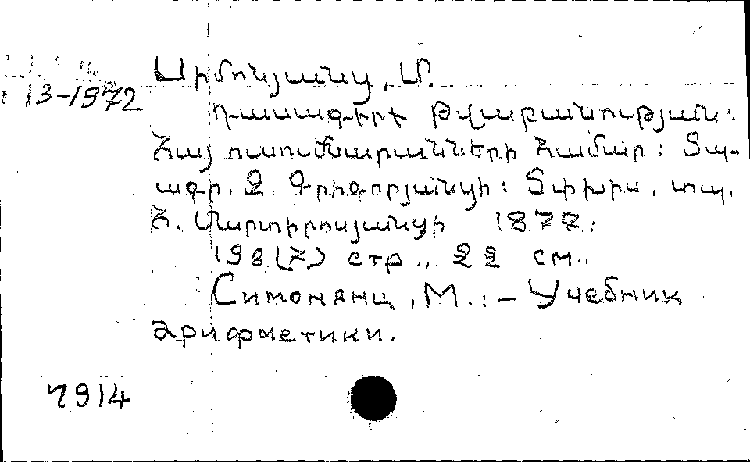 Սիմոնյանց, Մ.
13-1572
Դասագիրք թվաբանության:
Հայ ուսումնարանների համար: Տպ-
ագր. Զ. Գրիգորյանցի: Տփխիս, տպ.
Հ. Մարտիրոսյանցի 1877.
198(7) стр., 22 см..
Симонянц, М.: – Учебник
арифметики.
7914